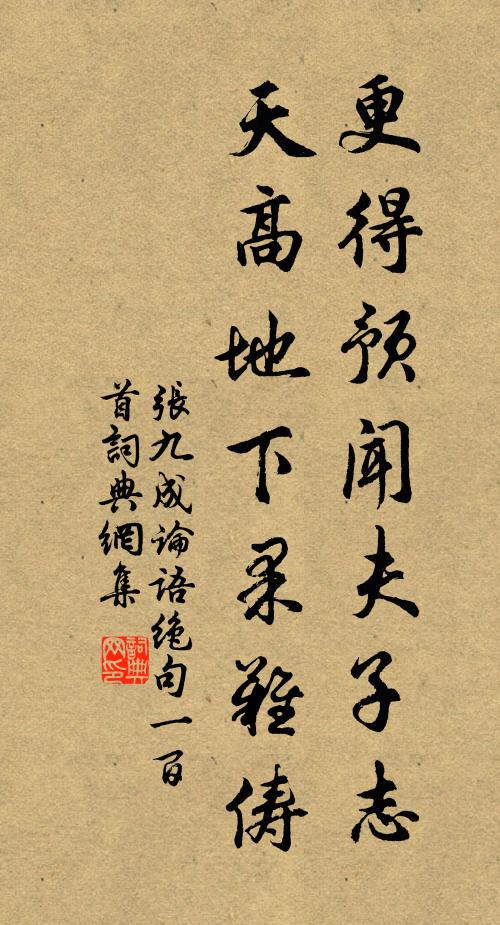 更得预闻夫子志
天高地下果難俦
張九成论语绝句一百
首詞典網集
詞典网印